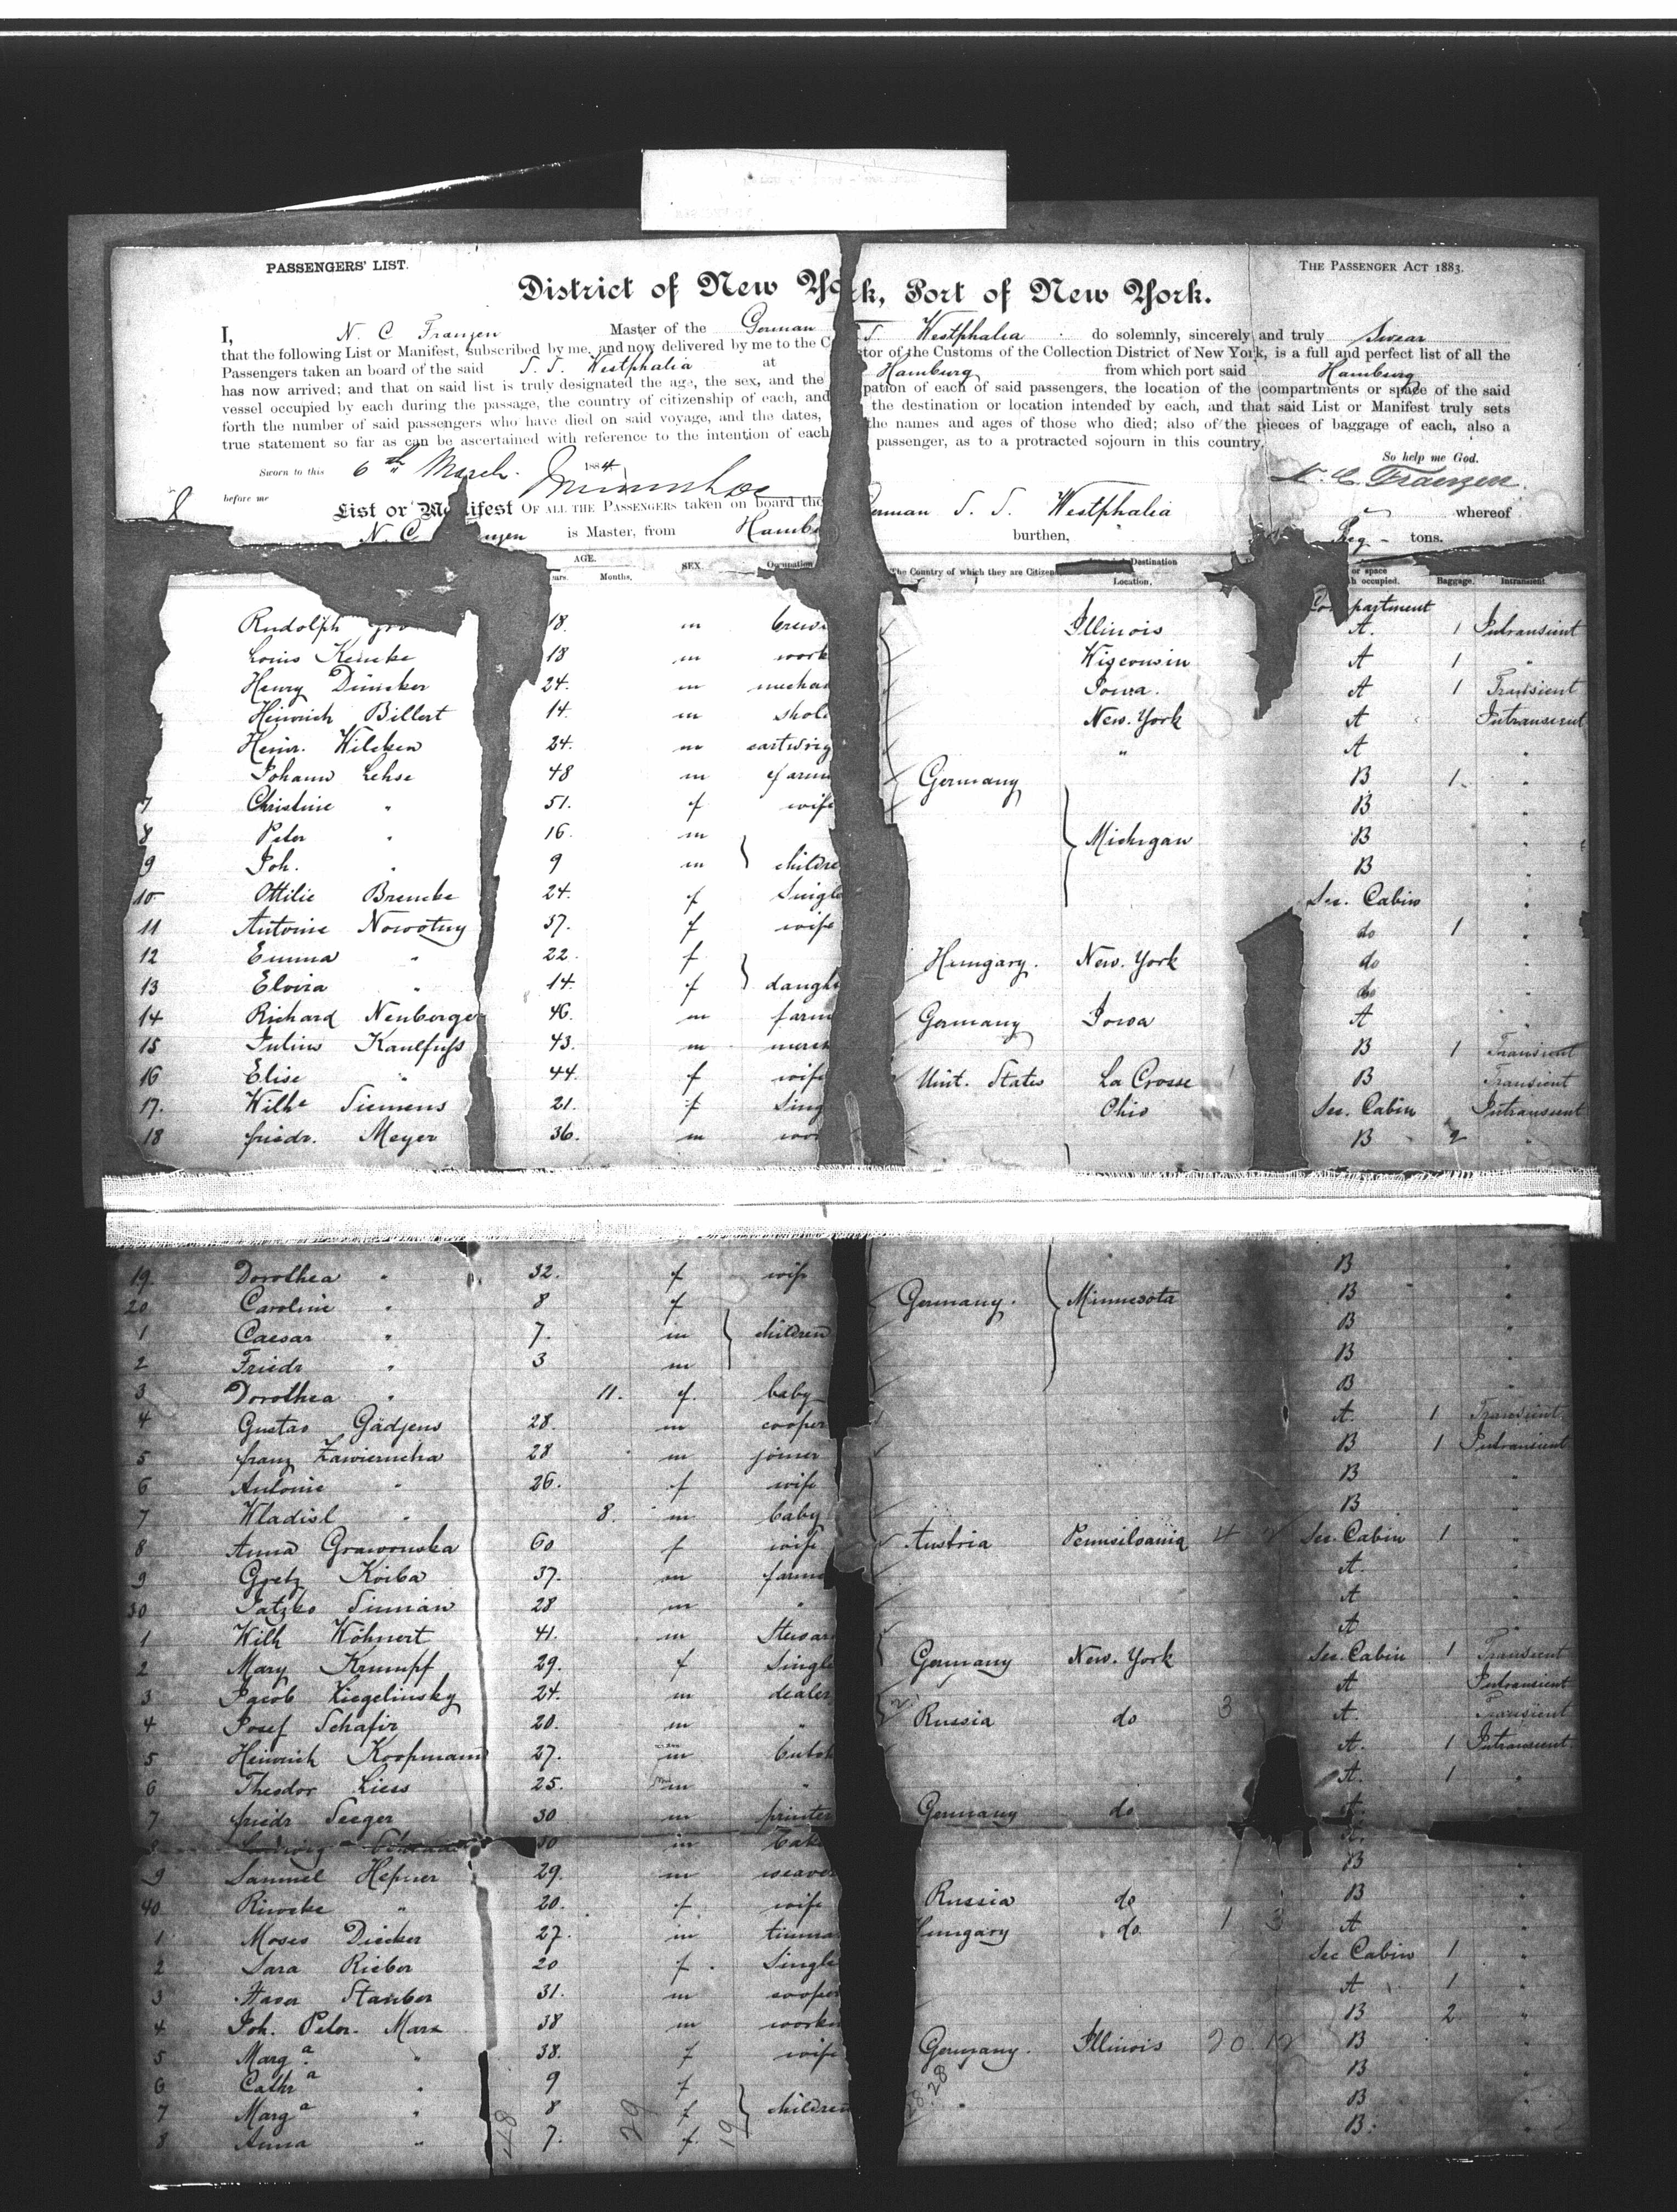 PASSENGERS' LIST.
THE PASSENGER ACT 1883.
District of New York, Port of New York.
I, N. C Franzen Master of the German S. Westphalia do solemnly, sincerely and truly Swear
that the following List or Manifest, subscribed by me, and now delivered by me to the C ctor of the Customs of the Collection District of New York, is a full and perfect list of all the
Passengers taken an board of the said S. S. Westphalia at Hamburg from which port said Hamburg
has now arrived; and that on said list is truly designated the age, the sex, and the pation of each of said passengers, the location of the compartments or space of the said
vessel occupied by each during the passage, the country of citizenship of each, and the destination or location intended by each, and that said List or Manifest truly sets
forth the number of said passengers who have died on said voyage, and the dates, the names and ages of those who died; also of the pieces of baggage of each, also a
true statement so far as can be ascertained with reference to the intention of each passenger, as to a protracted sojourn in this country.
So help me God.
Sworn to this 6th March 1884
N. C. Franzen.
before me
List or Manifest OF ALL THE PASSENGERS taken on board the German S. S. Westphalia whereof
N. C. nzen is Master, from Hambu burthen, Reg - tons.
AGE. SEX. Occupation The Country of which they are Citizen Destination or space
ears. Months, Location, h occupied. Baggage. Intransient
Compartment
Rudolph 18. m brew Illinois A. 1 Intransient
Louis Kencke 18 m work Wisconsin A 1 "
Henry Dümcker 24. m mechan Iowa. A 1 Transient
Heinrich Billert 14. m shol New. York A Intransient
Heinr. Wilcken 24. m cartwrig " A "
Johann Lehse 48 m farm Germany B 1. "
7 Christine " 51. f wife B "
8 Peter " 16. m B "
9 Joh. " 9 m childre Michigan B "
10. Ottilie Brencke 24. f Single Sec. Cabin "
11 Antonie Nowotny 37. f wife do 1 "
12 Emma " 22. f Hungary. New. York do "
13 Elvira " 14. f daught do "
14 Richard Neuberge 46. m farm Germany Iowa A "
15 Julius Kaulfuss 43. m merch B 1 Transient
16 Elise " 44. f wife Unit. States La Crosse B Transient
17. Wilhe Siemens 21. f Sing Ohio Sec. Cabin Intransient
18 friedr. Meyer 36. m wor B 2 "
19. Dorothea " 32. f wife B "
20 Caroline " 8 f Germany. Minnesota B "
1 Caesar " 7. m children B "
2 Friedr " 3 m B "
3 Dorothea " 11. f. baby B "
4 Gustav Gädjens 28. m cooper A. 1 Transient
5 franz Zawierucha 28 m joiner B 1 Intransient
6 Antonie " 26. f wife B "
7 Wladisl " 8. m baby B "
8 Anna Grawonska 60 f wife Austria Pennsilvania 4 Sec. Cabin 1 "
9 Gretz Koiba 37. m farme A. "
30 Jatzko Simian 28 m " A "
1 Wilh Wöhnert 41. m Stewar A "
2 Mary Krumpf 29. f Single Germany New. York Sec. Cabin 1 Transient
3 Jacob Liegelinsky 24. m dealer A Intransient
4 Josef Schafir 20. m " Russia do 3 A. Transient
5 Heinrich Koopmann 27. m butch A. 1 Intransient.
6 Theodor Liess 25. m " A. 1 "
7 friedr Seeger 30 m printer Germany do A. "
8 Ludwig 30 m bak A.
9 Samuel Hepner 29. m weaver B "
40. Riwcke " 20. f. wife Russia do B "
1 Moses Diecker 27. m tinma Hungary do. 1 3 A "
2 Sara Rieber 20 f. Single Sec Cabin 1 "
3 Xaver Stauber 31. m cooper A 1 "
4 Joh. Peter. Marx 38 m worke B 2. "
5 Marga. " 38. f wife Germany. Illinois 20 12 B "
6 Catha " 9 f B "
7 Marga " 8 f children B "
8 Anna " 7. f. B. "
28 29 19